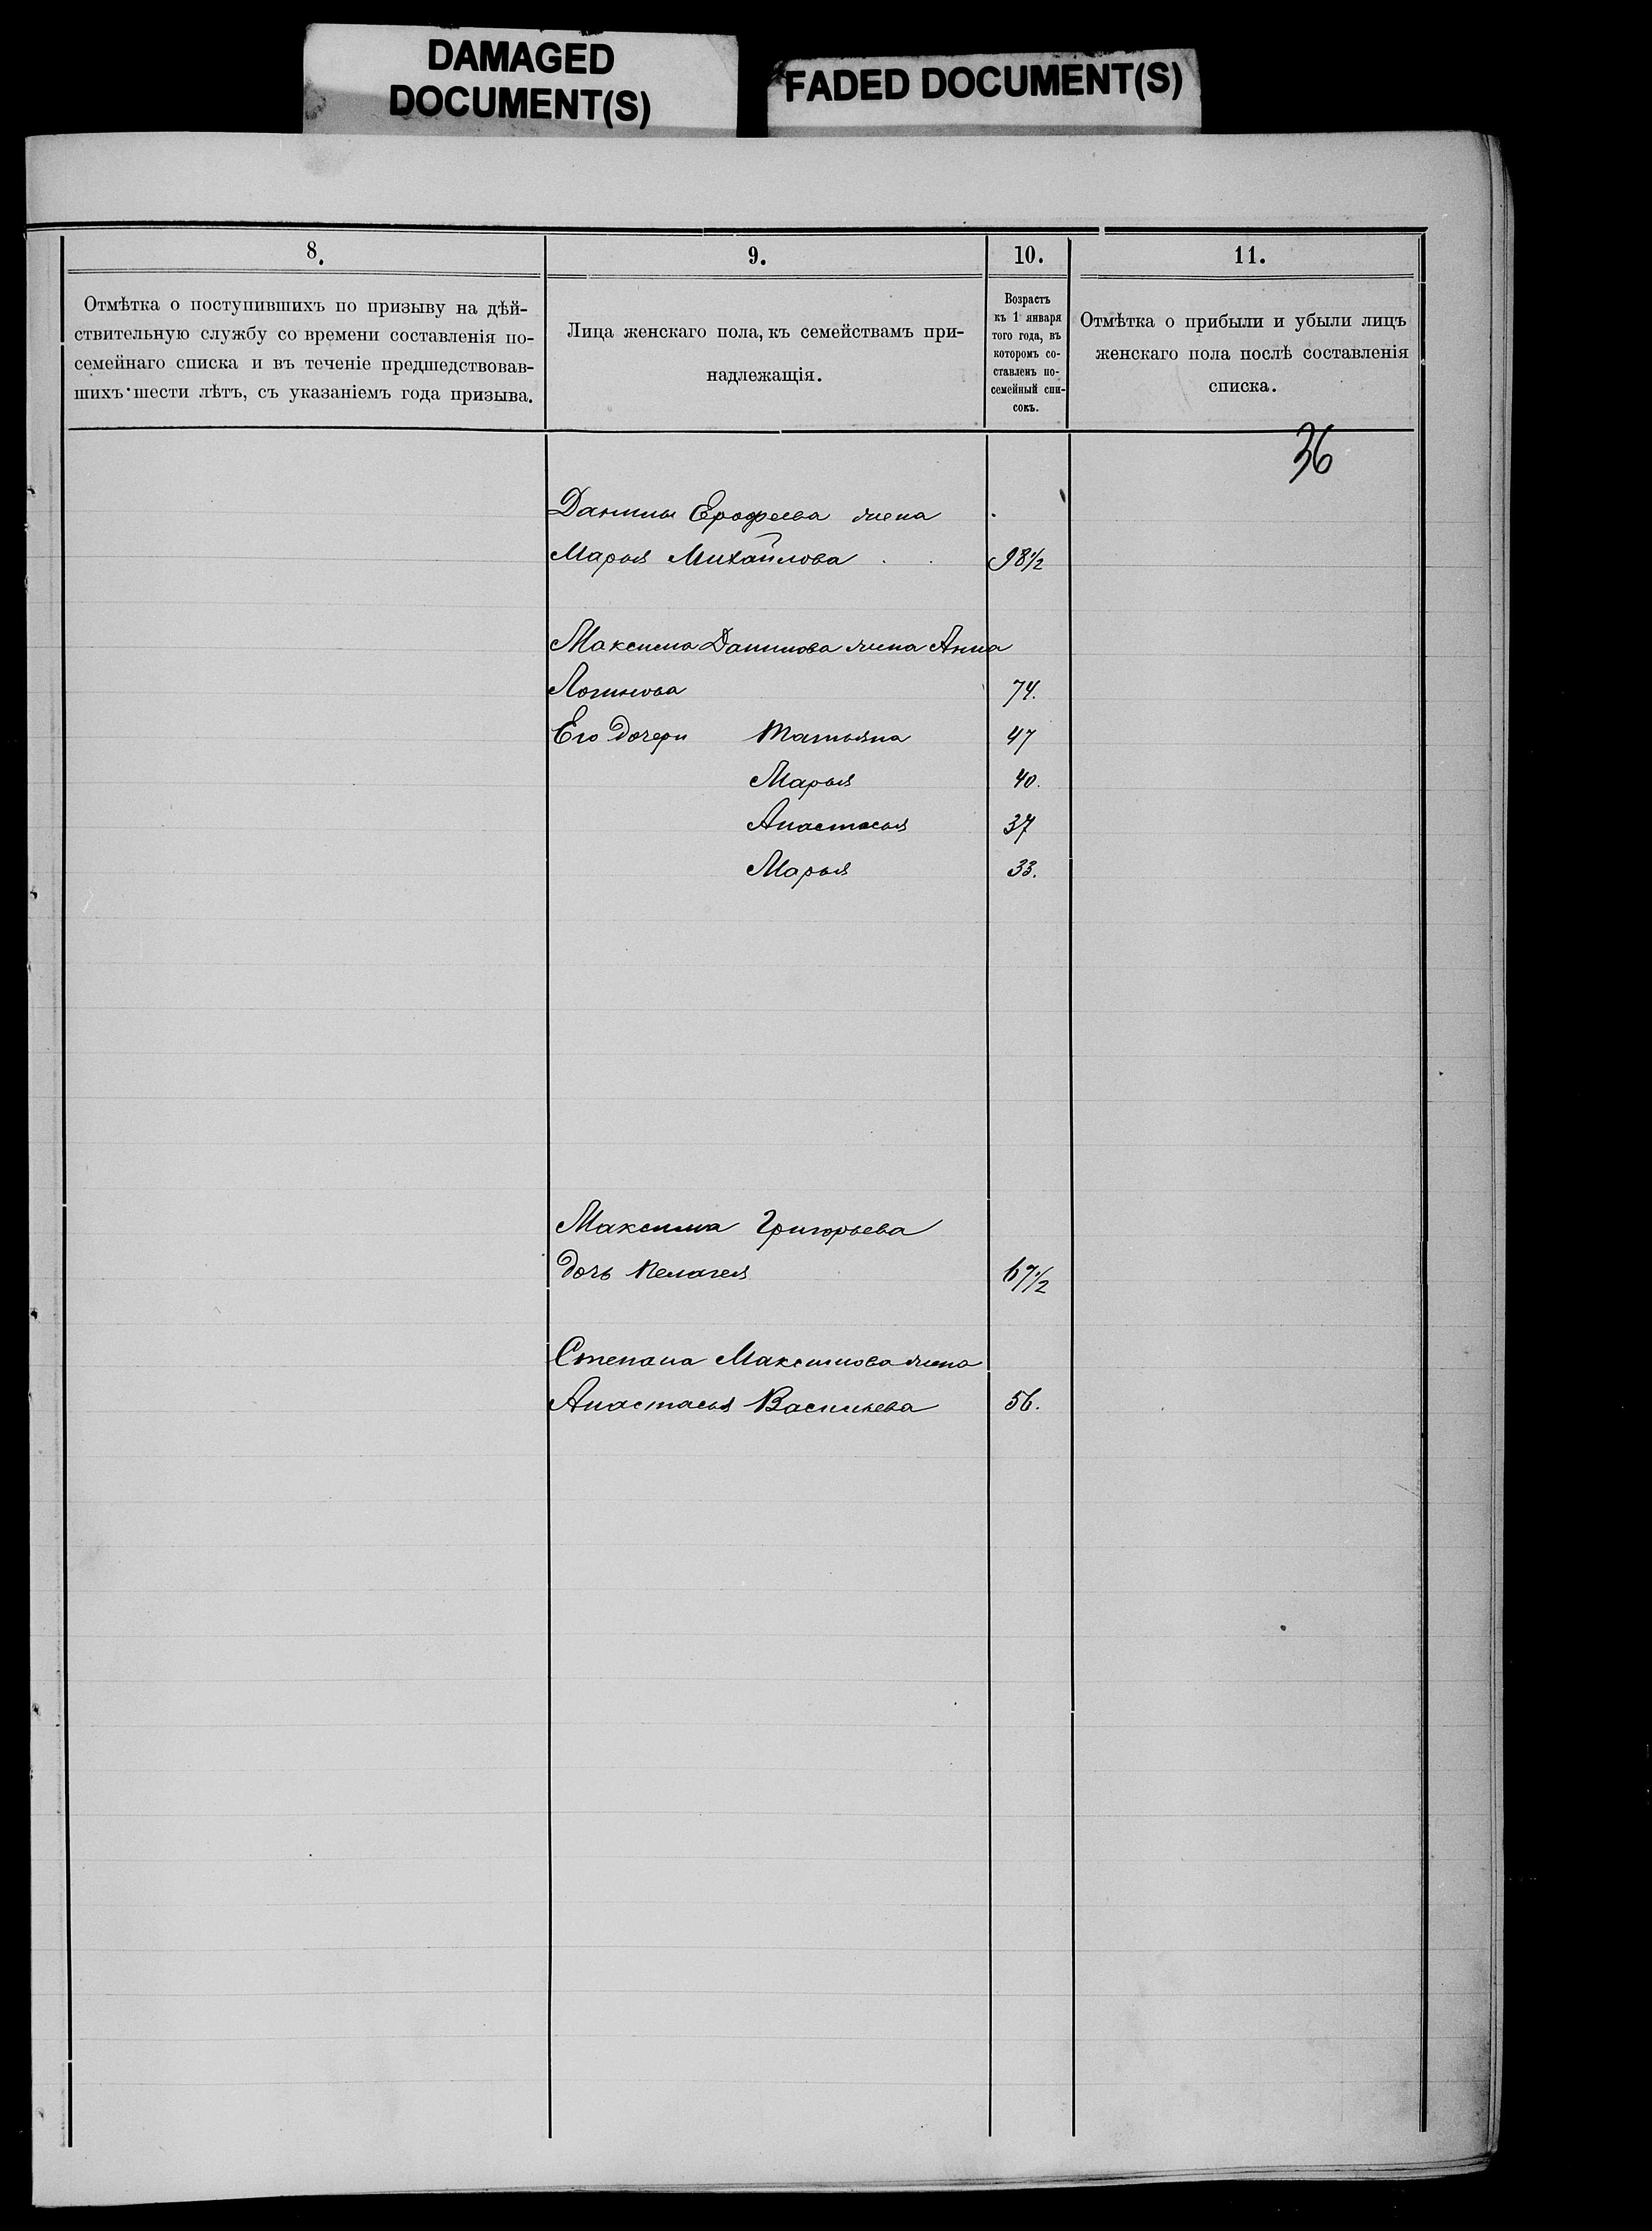 DAMAGED
DOCUMENT(S)
FADED DOCUMENT(S)
8.
9.
10.
11.
Отмѣтка о поступившихъ по призыву на дѣй-
ствительную службу со времени составленія по-
семейнаго списка и въ теченіе предшедствовав-
шихъ шести лѣтъ, съ указаніемъ года призыва.
Лица женскаго пола, къ семействамъ при-
надлежащія.
Возрастъ
къ 1 января
того года, въ
которомъ со-
ставленъ по-
семейный спи-
сокъ.
Отмѣтка о прибыли и убыли лицъ
женскаго пола послѣ составленія
списка.
36
Данилы Ерофеева жена
Марья Михайлова 98 1/2
Максима Данилова жена Анна
Логинова 74.
Его дочери Татьяна 47
Марья 40.
Анастасья 37
Марья 33.
Максима Григорьева
дочь Пелагея 67 1/2
Степана Максимова жена
Анастасья Васильева 56.